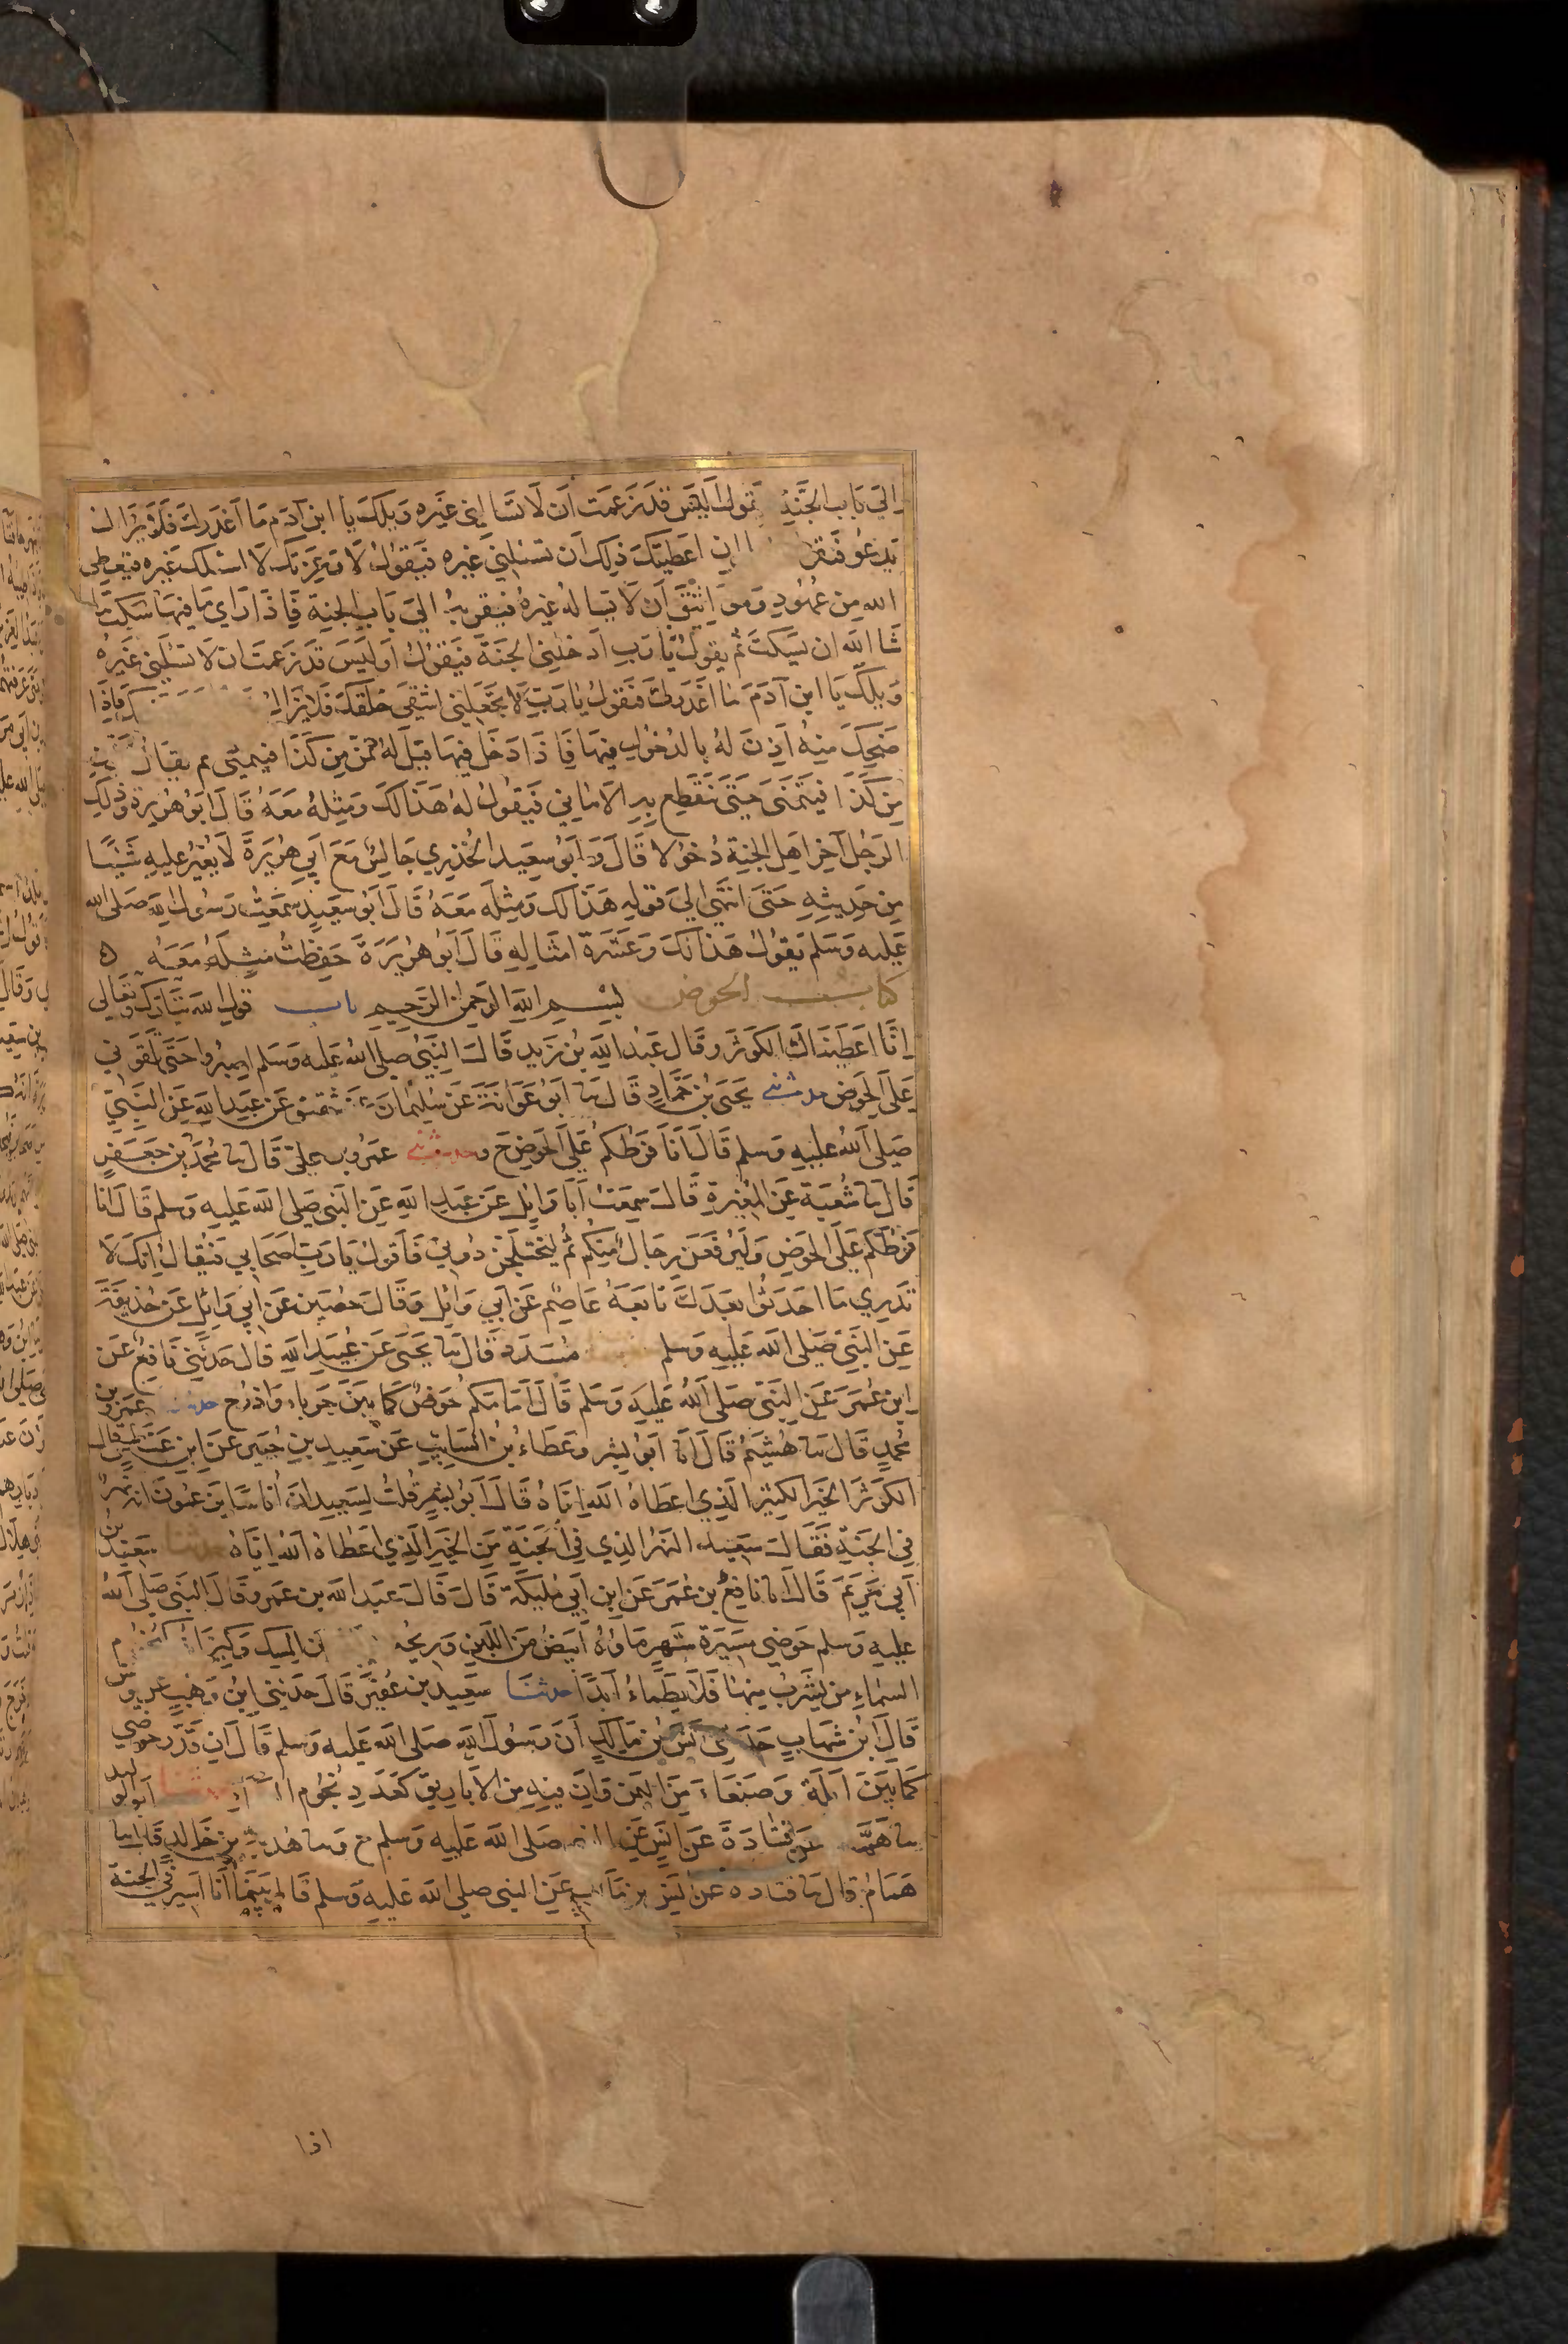 الي باب الجنة يقول اليس قد زعمت ان لا تسالني غيره ويلك يا ابن آدم ما اغدرك فلا يزال
يدعو فيقو ان اعطيتك ذلك ان تسئلني غيره فيقول لا وعزتك لا اسئلك غيره فيعطي
الله من عهود ومواثيق ان لا يساله غيره فيقربه الي باب الجنة فاذا راي ما فيها سكت ما
شا الله ان يسكت ثم يقول يا رب ادخلني الجنة فيقول او ليس قد زعمت ان لا تسئلني غيره
ويلك يا ابن آدم ما اغدرك فيقول يا رب لا تجعلني اشقي خلقك فلا يزال فاذا
ضحك منه اذن له بالدخول فيها فاذا دخل فيها قيل له تمن من كذا فيتمني ثم يقال
من كذا فيتمني حتي تنقطع به الاماني فيقول له هذا لك ومثله معه قال ابو هريرة وذلك
الرجل آخر اهل الجنة دخولا قال وابو سعيد الخدري جالس مع ابي هريرة لا يغير عليه شيئا
من حديثه حتي انتهي الي قوله هذا لك ومثله معه قال ابو سعيد سمعت رسول الله صلي الله
عليه وسلم يقول هذا لك وعشرة امثاله قال ابو هريرة حفظت مثله معه ه
كتاب الحوض بسم الله الرحمن الرحيم باب قول الله تبارك وتعالي
انا اعطيناك الكوثر وقال عبد الله بن زيد قال النبي صلي الله عليه وسلم اصبروا حتي تلقوني
علي الحوض حدثني يحيي بن حماد قال سا ابو عوانة عن سليمان عن شقيق عن عبد الله عن النبي
صلي الله عليه وسلم قال انا فرطكم علي الحوض ح وحدثني عمرو بن علي قال سا محمد بن جعفر
قال سا شعبة عن المغيرة قال سمعت ابا وائل عن عبد الله عن النبي صلي الله عليه وسلم قال انا
فرطكم علي الحوض وليرفعن رجال منكم ثم ليختلجن دوني فاقول يا رب اصحابي فيقال انك لا
تدري ما احدثوا بعدك تابعه عاصم عن ابي وائل وقال حصين عن ابي وائل عن حذيفة
عن النبي صلي الله عليه وسلم مسدد قال سا يحيي عن عبيد الله قال حدثني نافع عن
ابن عمر عن النبي صلي الله عليه وسلم قال امامكم حوض كما بين جرباء واذرح حدثنا عمرو بن
محمد قال سا هشيم قال انا ابو بشر وعطاء بن السايب عن سعيد بن جبير عن ابن عباس قال
الكوثر الخير الكثير الذي اعطاه الله اياه قال ابو بشر قلت لسعيد ان اناسا يزعمون انه نهر
في الجنة فقال سعيد النهر الذي في الجنة من الخير الذي اعطاه الله اياه حدثنا سعيد بن
ابي مريم قال انا نافع بن عمر عن ابن ابي مليكة قال قال عبد الله بن عمرو قال النبي صلي الله
عليه وسلم حوضي مسيرة شهر ماؤه ابيض من اللبن وريحه من المسك وكيزانه كنجوم
السماء من يشرب منها فلا يظماء ابدا حدثنا سعيد بن عفير قال حدثني ابن وهب عن يونس
قال ابن شهاب حدثني انس بن مالك ان رسول الله صلي الله عليه وسلم قال ان قدر حوضي
كما بين ايلة وصنعاء من اليمن وان فيه من الاباريق كعدد نجوم حدثنا ابو الوليد
سا همام عن قتادة عن انس عن صلي الله عليه وسلم ح وسا هدبة بن خالد قال سا
همام قال سا قتاده عن انس بن مالك عن النبي صلي الله عليه وسلم قال بينما انا اسير في الجنة